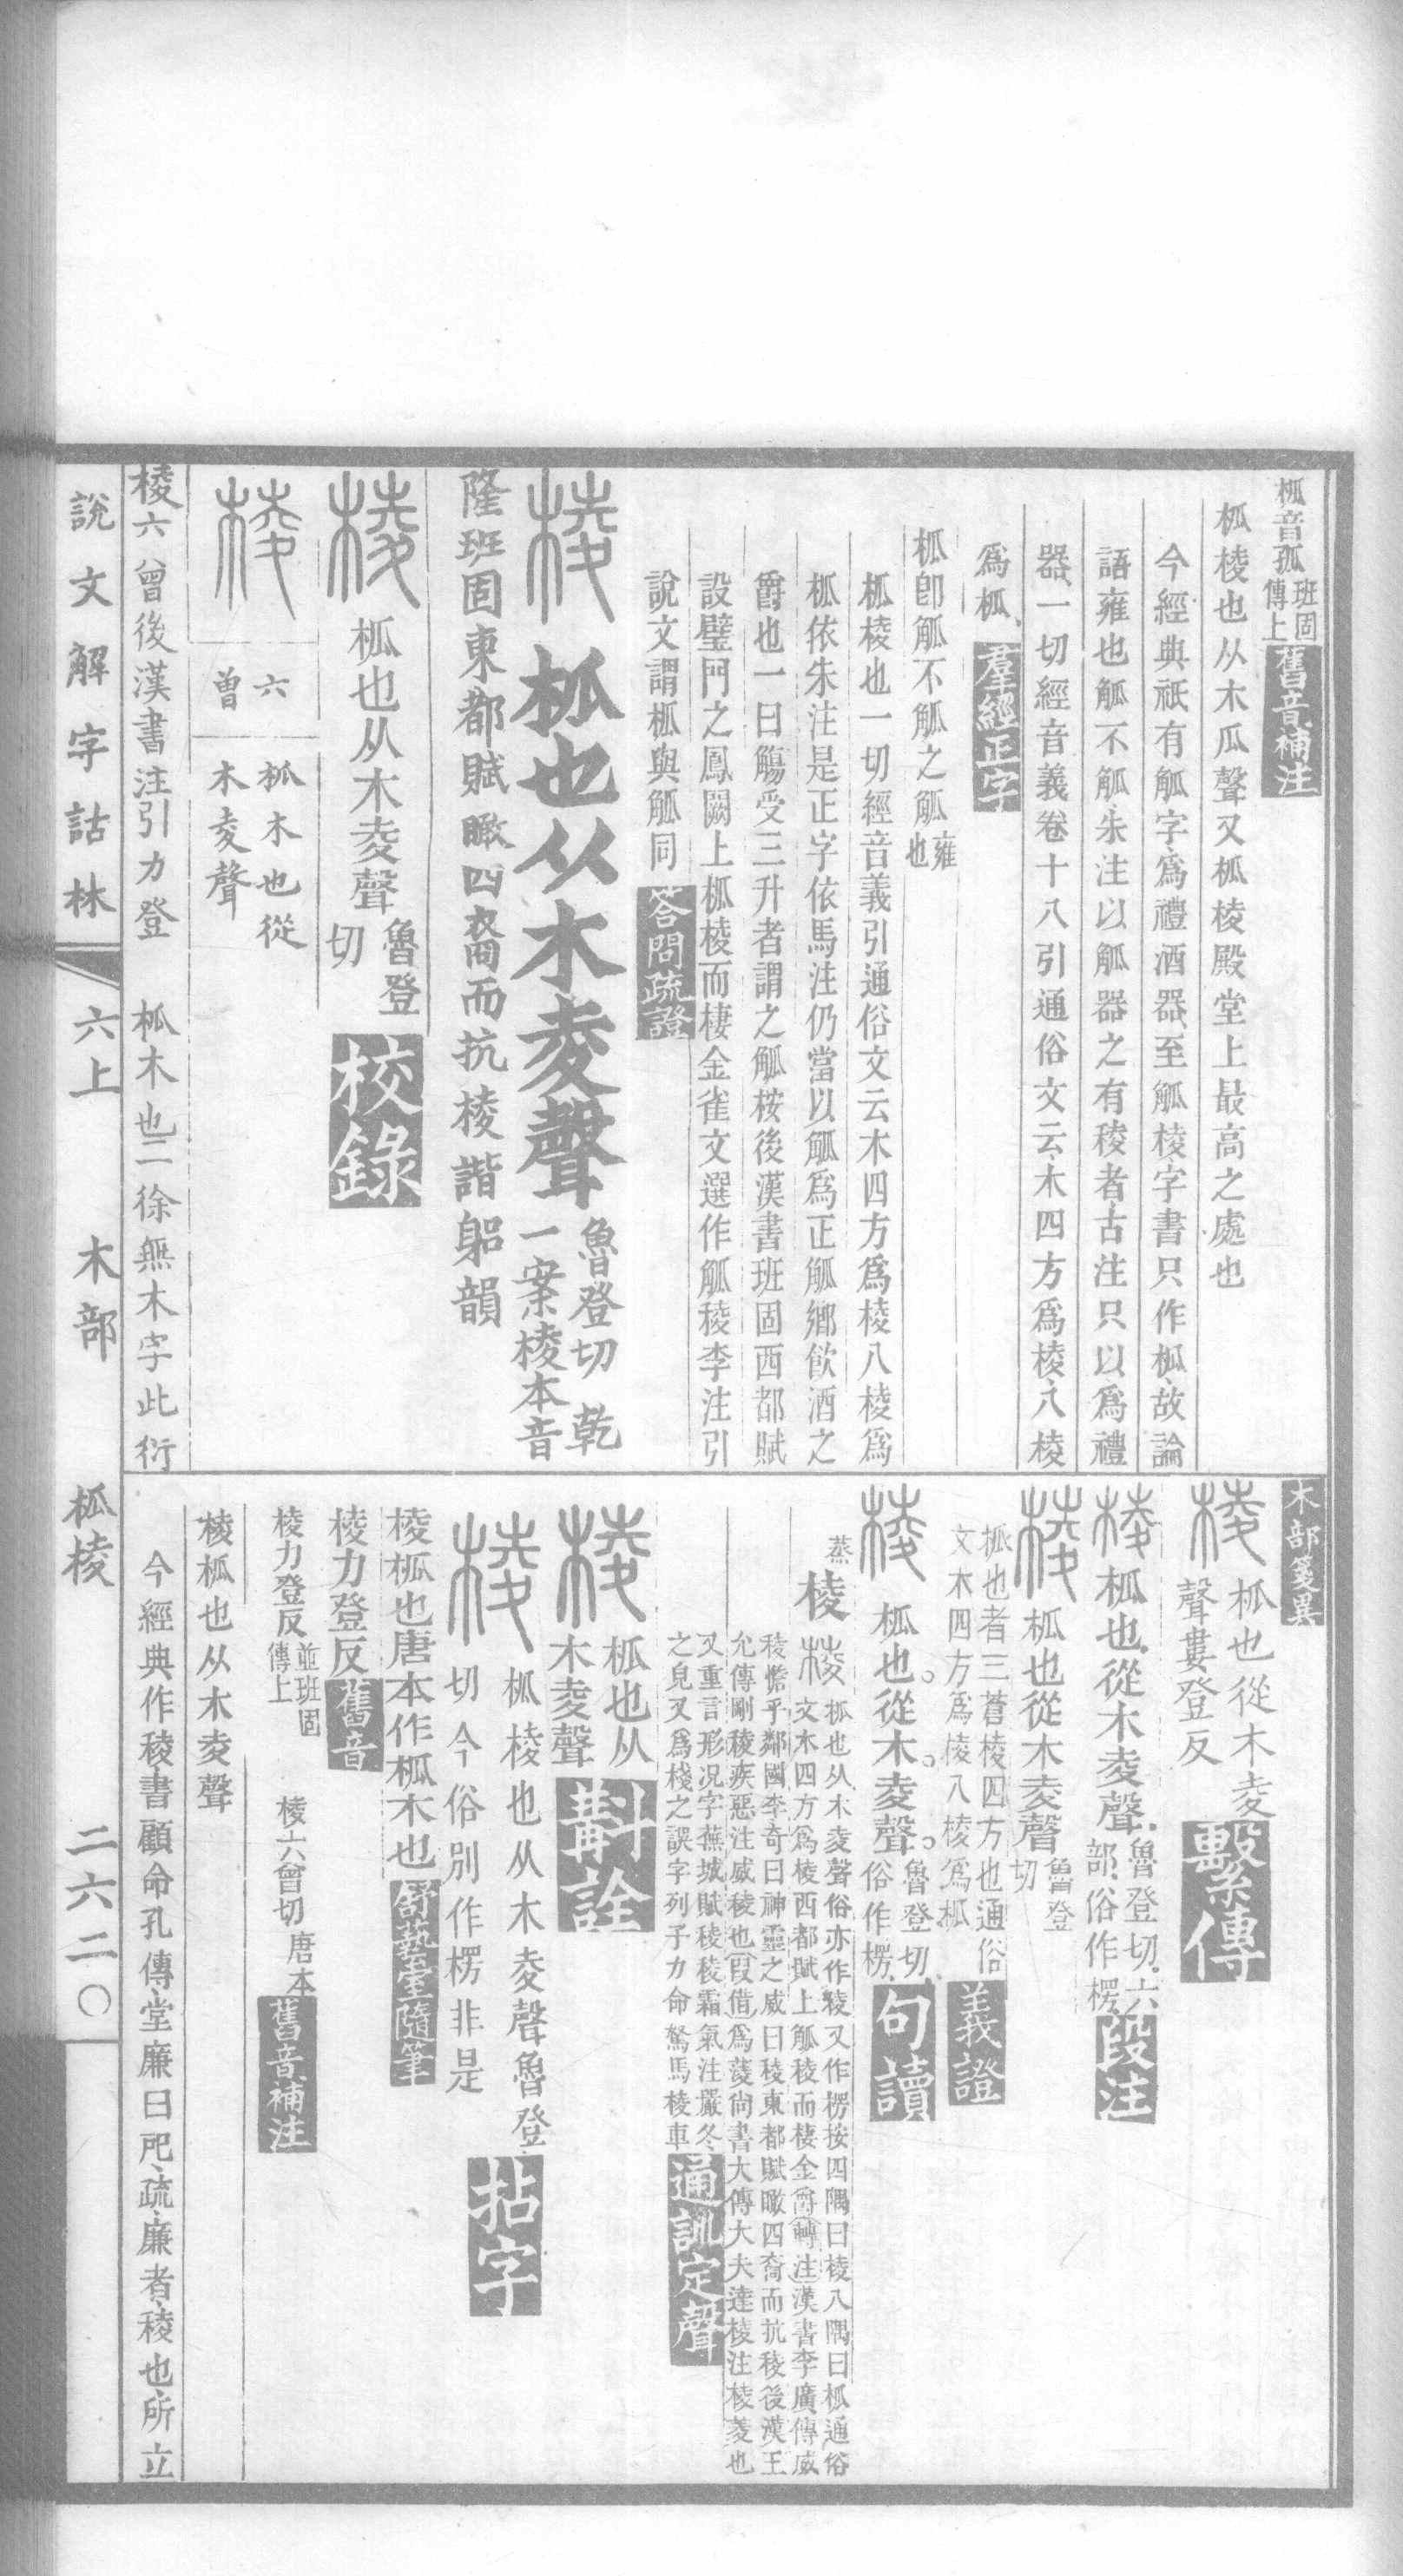 柧音孤班固傳上舊音補注
柧棱也从木瓜聲又柧棱殿堂上最高之處也
今經典祇有觚字爲禮酒器至觚棱字書只作柧故論
語雍也觚不觚朱注以觚器之有稜者古注只以爲禮
器一切經音義卷十八引通俗文云木四方爲棱八棱
爲柧羣經正字
柧卽觚不觚之觚雍也
柧棱也一切經音義引通俗文云木四方爲棱八棱爲
柧依朱注是正字依馬注仍當以觚爲正觚鄉飮酒之
爵也一曰觴受三升者謂之觚桉後漢書班固西都賦
設璧門之鳳闕上柧棱而棲金雀文選作觚稜李注引
說文謂柧與觚同答問疏證
棱柧也从木夌聲魯登切 乾一案棱本音
隆班固東都賦瞰四裔而抗棱諧躳韻
棱柧也从木夌聲魯登切校錄
棱六曾柧木也從木夌聲
棱六曾後漢書注引力登 柧木也二徐無木字此衍
木部箋異
棱柧也從木夌聲婁登反繫傳
棱柧也從木夌聲魯登切六部俗作楞段注
棱柧也從木夌聲魯登切
柧也者三蒼棱四方也通俗文木四方爲棱八棱爲柧義證
棱柧也從木夌聲魯登切俗作楞句讀
蒸棱棱柧也从木夌聲俗亦作稜又作楞按四隅曰棱八隅曰柧通俗
文木四方爲棱西都賦上觚稜而棲金爵轉注漢書李廣傳威
稜憺乎鄰國李奇曰神靈之威曰稜東都賦瞰四裔而抗稜後漢王
允傳剛稜疾惡注威稜也叚借爲菱尙書大傳大夫達棱注棱菱也
又重言形况字蕪城賦稜稜霜氣注嚴冬
之皃又爲棧之誤字列子力命駑馬棱車通訓定聲
棱柧也从木夌聲斠詮
棱柧棱也从木夌聲魯登切今俗別作楞非是拈字
棱柧也唐本作柧木也舒藝室隨筆
棱力登反舊音
棱力登反並班固傳上 棱六曾切唐本舊音補注
棱柧也从木夌聲
今經典作稜書顧命孔傳堂廉曰戺疏廉者稜也所立
說文解字詁林 六上 木部 柧棱 二六二〇